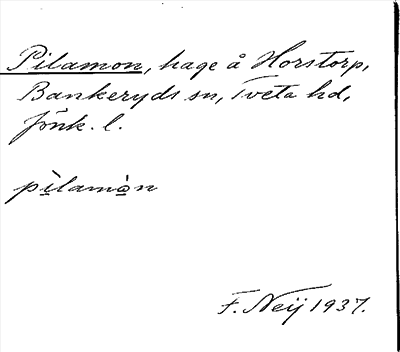 Pilamon, hage å Horstorp,
Bankeryds sn, Tveta hd,
Jönk. l.
pìlamòn
F. Neij 1937.